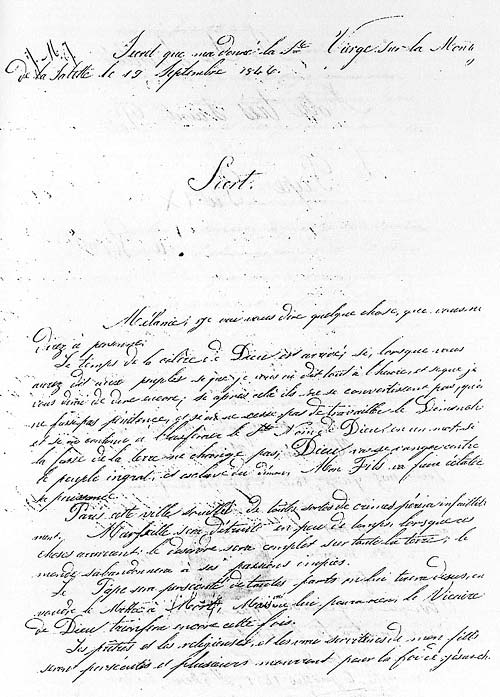 J. M. J.
Secret que ma donné la Ste Vierge sur la Mont.
de la Salette le 19 Septembre 1846.
Secret.
Mélanie; je vai vous dire quelque chose, que vous ne
direz à personne:
Le temps de la colère de Dieu est arrivé; si, lorsque vous
aurez dit aux peuples ce que je vous ai dit tout à l'heure, et ce que je
vous dirai de dire encore; si après cela ils ne se convertissent pas, qu'on
ne fasse pas pénitence, et si on ne cesse pas de travailler le Dimanche
et si on continue à blasphemer le St Nom de Dieu, en un mot, si
la face de la terre ne change pas, Dieu va se vanger contre
le peuple ingrat, et esclave du démon. Mon Fils va faire éclater
sa puissance.
Paris cette ville souillée de toutes sortes de crimes périra infaillible-
ment. Marseille sera détruite en peu de temps, lorsque ces
choses arriveront, le désordre sera complet sur toute la terre; le
monde s'abandonnera à ses passions impies.
Le Pape sera persécuté de toutes parts on lui tirera dessus, on
voudra le Mettre à Mort, Mais on lui pourra rien, le Vicaire
de Dieu triomfera encore cette fois.
Les prêtres et les religieuses, et les vrai serviteurs de mon fils
seront persécutés et plusieurs mourront pour la foi de jésus ch.